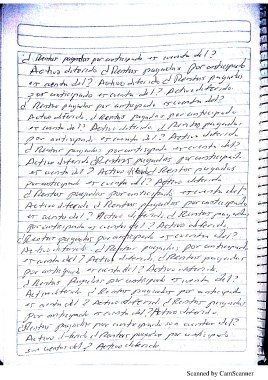 ¿Rentas pagadas por anticipado es cuenta del?
Activo diferido ¿Rentas pagadas por anticipado
es cuenta del? Activo diferido ¿Rentas pagadas
por anticipado es cuenta del? Activo diferido.
¿Rentas pagadas por anticipado es cuenta del?
Activo diferido. ¿Rentas pagadas por anticipado
es cuenta del? Activo diferido ¿Rentas pagadas
por anticipado es cuenta del? Activo diferido.
¿Rentas pagadas por anticipado es cuenta del?
Activo diferido ¿Rentas pagadas por anticipado
es cuenta del? Activo diferido ¿Rentas pagadas
por anticipado es cuenta del? Activo diferido
¿Rentas pagadas por anticipado es cuenta del?
Activo diferido ¿Rentas pagadas por anticipado
es cuenta del? Activo diferido ¿Rentas pagadas
por anticipado es cuenta del? Activo diferido
¿Rentas pagadas por anticipado es cuenta del?
Activo diferido ¿Rentas pagadas por anticipado
es cuenta del? Activo diferido ¿Rentas pagadas
por anticipado es cuenta del? Activo diferido.
¿Rentas pagadas por anticipado es cuenta del?
Activo diferido ¿Rentas pagadas por anticipado
es cuenta del? Activo diferido ¿Rentas pagadas
por anticipado es cuenta del? Activo diferido
¿Rentas pagadas por anticipado son cuentas del?
Activo diferido ¿Rentas pagadas por anticipado
son cuentas del? Activo diferido
Scanned by CamScanner